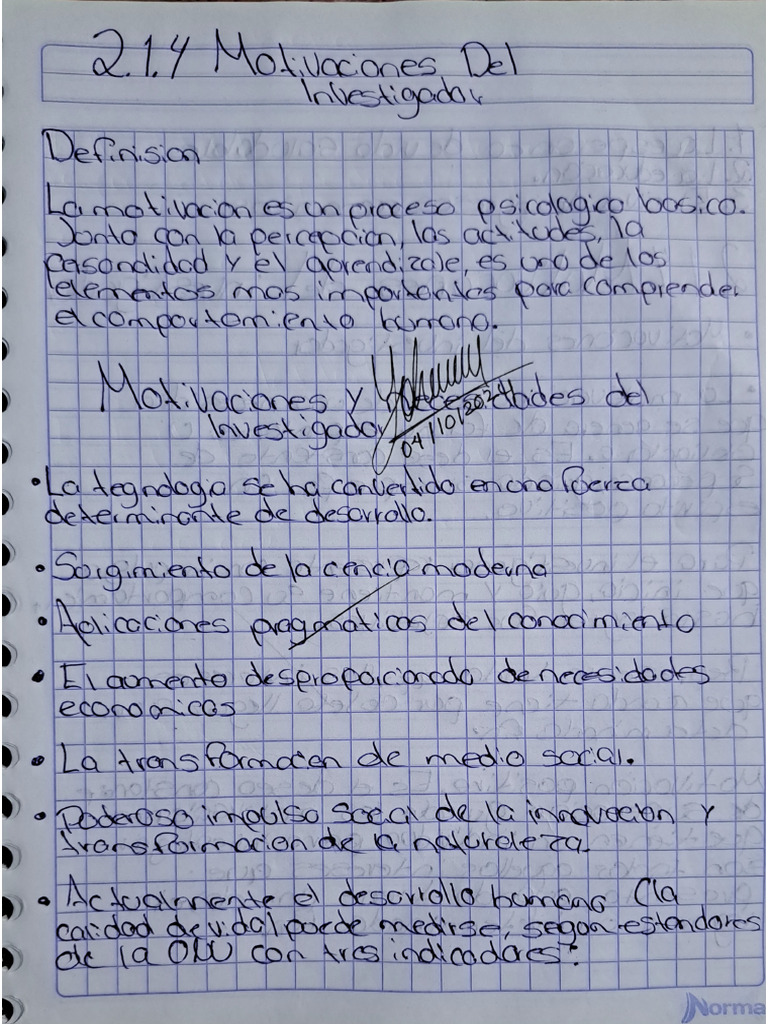 2.1.4 Motivaciones Del
Investigador
Definision
La motivacion es un proceso psicologico basico.
Junto con la percepcion, las actitudes, la
personalidad y el aprendizaje, es uno de los
elementos mas importantes para comprender
el comportamiento humano.
Motivaciones y Necesidades del
Investigador
04/10/2024
• La tegnologia se ha convertido en una fuerza
determinante de desarrollo.
• Surgimiento de la cencia moderna
• Aplicaciones pragmaticas del conocimiento
• El aumento desproporcionado de necesidades
economicas
• La transformacion de medio social.
• Poderoso impulso social de la innovacion y
transformacion de la naturaleza.
• Actualmente el desarrollo humano (la
calidad de vida) puede medirse, segun estandares
de la ONU con tres indicadores:
Norma